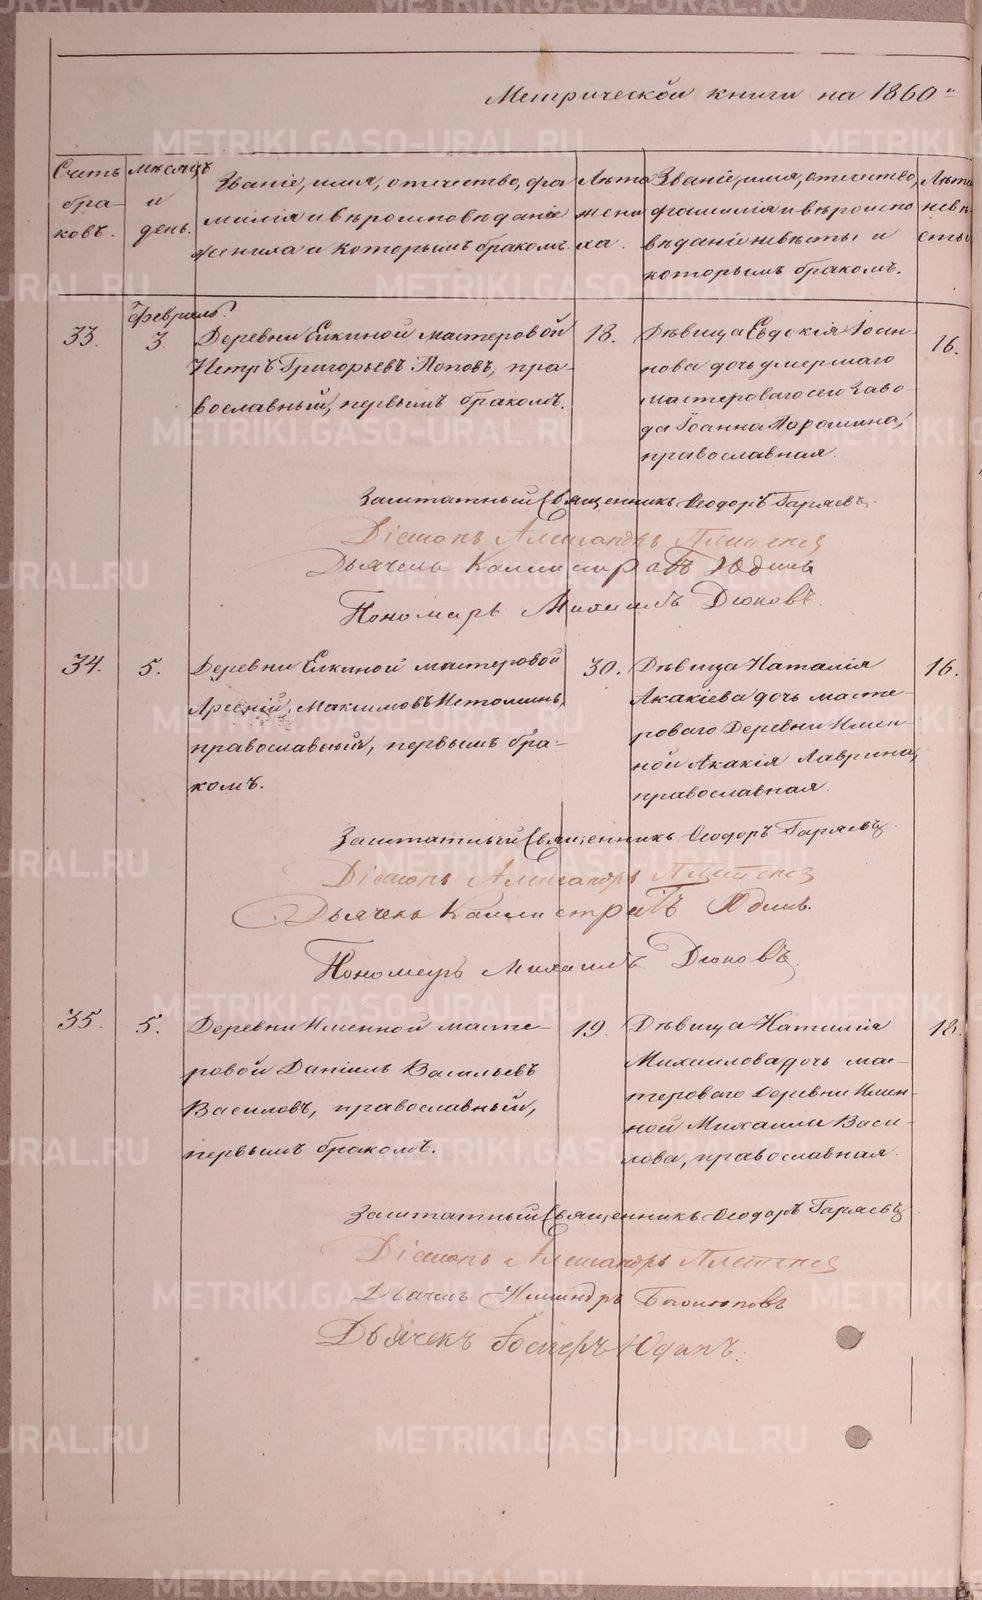 Метрической книги на 1860
Счетъ браковъ.
Мѣсяцъ и день.
Званіе, имя, отечество, фамилія и вѣроисповѣданіе жениха и которымъ бракомъ.
Лѣта жениха.
Званіе, имя, отечество, фамилія и вѣроисповѣданіе невѣсты и которымъ бракомъ.
Лѣта невѣсты
Февраль.
33.
3.
Деревни Елкиной мастеровой
Петръ Григорьевъ Поповъ, пра-
вославный, первымъ бракомъ.
18.
Дѣвица Евдокія Іоан-
нова дочь умершаго
мастероваго сего Заво-
да Іоанна Порошина,
православная.
16.
Заштатный Священникъ Ѳеодоръ Гаряевъ
Діаконъ Александръ
Дьячекъ Каллистратъ Юдинъ
Пономарь Михаилъ Дюковъ.
34.
5.
Деревни Елкиной мастеровой
Арсеній Максимовъ Истоминъ,
православный, первымъ бра-
комъ.
30.
Дѣвица Наталія
Акакіева дочь масте-
роваго Деревни Имен-
ной Акакія Лаврина,
православная.
16.
Заштатный Священникъ Ѳеодоръ Гаряевъ
Діаконъ Александръ
Дьячекъ Каллистратъ Юдинъ.
Пономарь Михаилъ Дюковъ.
35.
5.
Деревни Именной масте-
ровой Даніилъ Васильевъ
Василовъ, православный,
первымъ бракомъ.
19.
Дѣвица Наталія
Михаилова дочь ма-
стероваго Деревни Имен-
ной Михаила Васи-
лова, православная.
18.
Заштатный Священникъ Ѳеодоръ Гаряевъ
Діаконъ Александръ
Дьячекъ
Дьячекъ Юдинъ.
METRIKI.GASO-URAL.RU